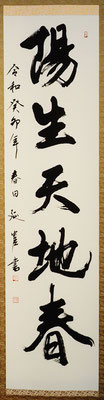 陽生天地春
令和癸卯年 春日 書